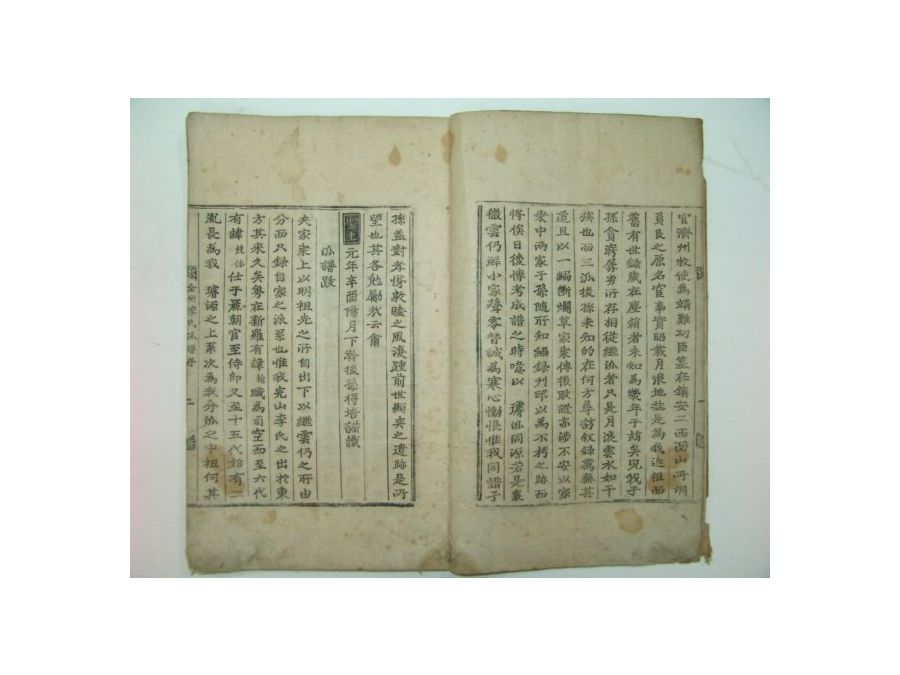 官濟州牧使爲靖難功臣墓在鎭安二西面山所洞
員良之原名官事實昭載月浪地誌是爲我近祖而
舊有世錄藏在塵箱者未知爲幾年于玆矣况我子
孫貧窮孱劣所存相從繼派者只是月浪雲水如干
族也而三派後孫未知的在何方尋訪叙錄萬無其
道且以一編斷爛草家乘傳後敢證亦涉不安以家
乘中兩家子孫隨所知編錄刋印以爲不朽之跡而
將俟日後博考成譜之時噫以 璿派同源若是衰
微雲仍鮮小家聲零替誠爲寒心慟恨惟我同譜子
孫益對孝悌敦睦之風復踵前世顯奕之遺跡是所
望也其各勉勵哉云爾
聖上元年辛酉陽月下澣後孫得培謹識
派譜跋
夫家乘上以明祖先之所自出下以繼雲仍之所由
分而只錄自家之派系也惟我完山李氏之出於東
方其來久矣粤在新羅有諱翰職爲司空而至六代
有諱兢休仕于麗朝官至侍郞又至十五代始有二
胤長爲我 璿源之上系次爲我分派之中祖何其
全州李氏派譜序 二